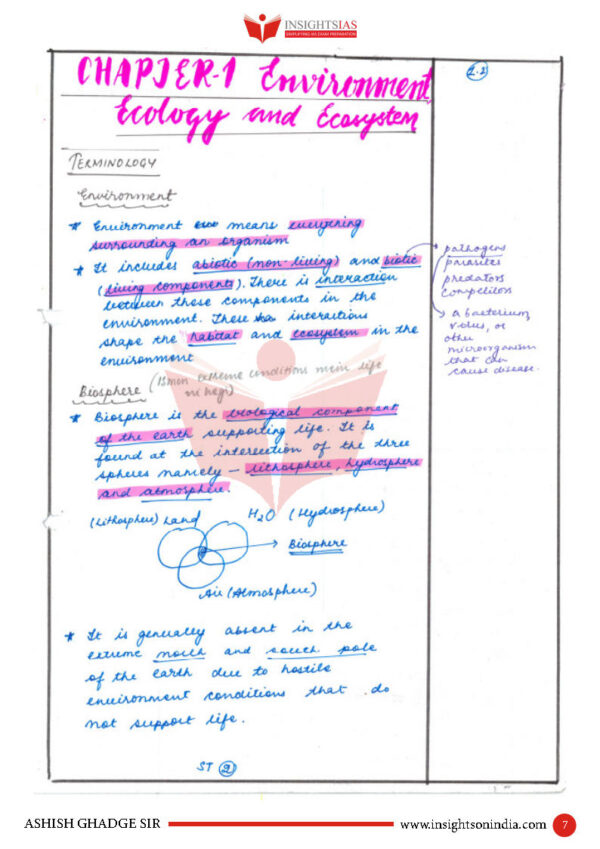 INSIGHTSIAS
SIMPLIFYING IAS EXAM PREPARATION
CHAPTER-1 Environment,
Ecology and Ecosystem
2.2
TERMINOLOGY
Environment
* Environment means everything
surrounding an organism
* It includes abiotic (non-living) and biotic
(living components). There is interaction
between those components in the
environment. These interactions
shape the habitat and ecosystem in the
environment
pathogens
parasites
predators
competitors
a bacterium,
virus, or
other
microorganism
that can
cause disease.
Biosphere (Isme extreme conditions mein life
ni hogi)
* Biosphere is the biological component
of the earth supporting life. It is
found at the intersection of the three
spheres namely - lithosphere, hydrosphere
and atmosphere.
(Lithosphere) Land H2O (Hydrosphere)
Biosphere
Air (Atmosphere)
* It is generally absent in the
extreme north and south pole
of the earth due to hostile
environment conditions that do
not support life.
ST 2
ASHISH GHADGE SIR www.insightsonindia.com 7